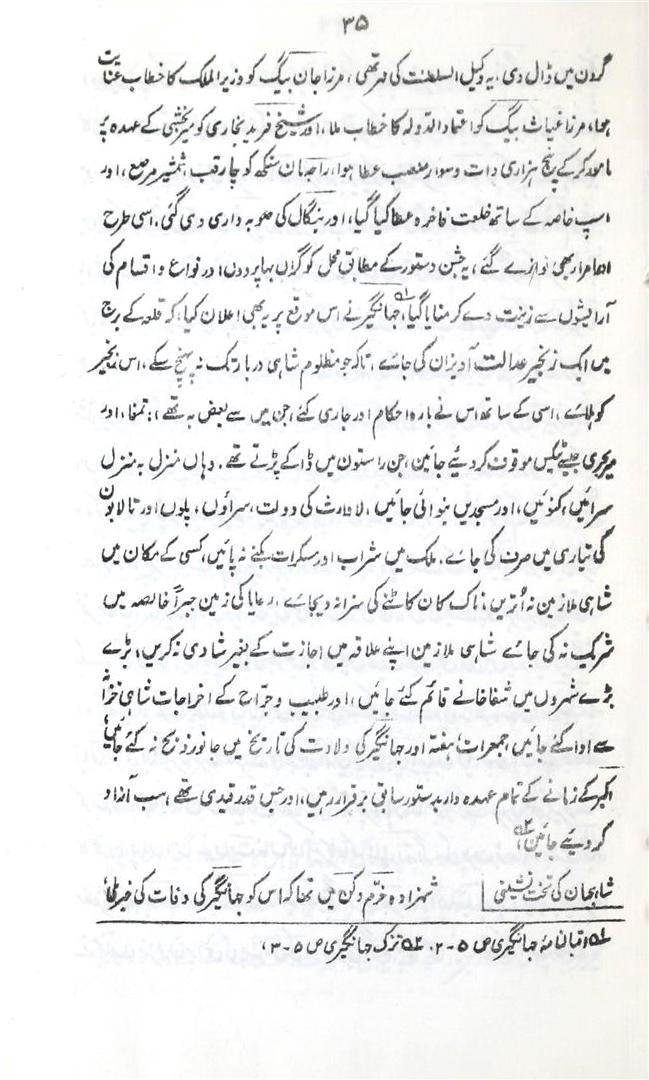 ۳۵
گردن میں ڈال دی، یہ وکیل السلطنت کی مہر تھی، مرزا جان بیگ کو وزیر الملک کا خطاب عنایت
ہوا، مرزا غیاث بیگ کو اعتماد الدولہ کا خطاب ملا، اور شیخ فرید بخاری کو میر بخشی کے عہدہ پر
مامور کر کے پنج ہزاری ذات و سوار منصب عطا ہوا، راجہ مان سنگھ کو چارقب، شمشیر مرصع، اور
اسپ خاصہ کے ساتھ خلعت فاخرہ عطا کیا گیا، اور بنگال کی صوبہ داری دی گئی، اسی طرح
اور امراء بھی نوازے گئے، یہ جشن دستور کے مطابق محل کو گراں بہا پردوں اور انواع و اقسام کی
آرائیشوں سے زینت دے کر منایا گیا،۱؎ جہانگیر نے اس موقع پر یہ بھی اعلان کیا، کہ قلعہ کے برج
میں ایک زنجیر عدالت آویزان کی جائے، تاکہ جو مظلوم شاہی دربار تک نہ پہنچ سکے، اس زنجیر
کو ہلائے، اسی کے ساتھ اس نے بارہ احکام اور جاری کئے، جن میں سے بعض یہ تھے: تمغا، اور
میر بحری جیسے ٹیکس موقوف کر دیئے جائین، جن راستون میں ڈاکے پڑتے تھے۔ وہاں منزل بہ منزل
سرائیں، کنوئیں، اور مسجدیں بنوائی جائیں، لاوارث کی دولت، سراؤں، پلوں اور تالابون
کی تیاری میں صرف کی جائے۔ ملک میں شراب اور مسکرات بکنے نہ پائیں، کسی کے مکان میں
شاہی ملازمین نہ اُتریں، ناک کان کاٹنے کی سزا نہ دیجائے، رعایا کی زمین جبراً خالصہ میں
شریک نہ کی جائے شاہی ملازمین اپنے علاقہ میں اجازت کے بغیر شادی نہ کریں، بڑے
بڑے شہروں میں شفاخانے قائم کئے جائیں، اور طبیب و جراح کے اخراجات شاہی خزانہ
سے ادا کئے جائیں، جمعرات، ہفتہ اور جہانگیر کی ولادت کی تاریخ میں جانور ذبح نہ کئے جائیں،
اکبر کے زمانے کے تمام عہدہ دار بدستور سابق برقرار رہیں، اور جس قدر قیدی تھے، سب آزاد
کر دیئے جائین،۲؎
شاہجہان کی تخت نشینی شہزادہ خرم دکن میں تھا کہ اس کو جہانگیر کی وفات کی خبر ملی،
۱؎ اقبالنامۂ جہانگیری ص ۵-۲۔ ۲؎ تزک جہانگیری ص ۵-۳،